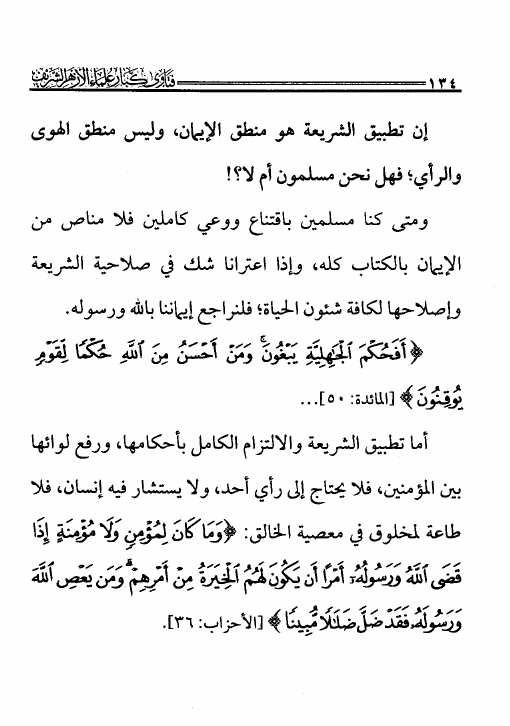 ١٣٤ فتاوى كبار علماء الأزهر الشريف
إن تطبيق الشريعة هو منطق الإيمان، وليس منطق الهوى
والرأي؛ فهل نحن مسلمون أم لا؟!
ومتى كنا مسلمين باقتناع ووعي كاملين فلا مناص من
الإيمان بالكتاب كله، وإذا اعترانا شك في صلاحية الشريعة
وإصلاحها لكافة شئون الحياة؛ فلنراجع إيماننا بالله ورسوله.
﴿ أَفَحُكْمَ ٱلْجَٰهِلِيَّةِ يَبْغُونَ ۚ وَمَنْ أَحْسَنُ مِنَ ٱللَّهِ حُكْمًا لِّقَوْمٍ
يُوقِنُونَ ﴾ [المائدة: ٥٠]...
أما تطبيق الشريعة والالتزام الكامل بأحكامها، ورفع لوائها
بين المؤمنين، فلا يحتاج إلى رأي أحد، ولا يستشار فيه إنسان، فلا
طاعة لمخلوق في معصية الخالق: ﴿وَمَا كَانَ لِمُؤْمِنٍ وَلَا مُؤْمِنَةٍ إِذَا
قَضَى ٱللَّهُ وَرَسُولُهُۥٓ أَمْرًا أَن يَكُونَ لَهُمُ ٱلْخِيَرَةُ مِنْ أَمْرِهِمْ ۗ وَمَن يَعْصِ ٱللَّهَ
وَرَسُولَهُۥ فَقَدْ ضَلَّ ضَلَٰلًا مُّبِينًا ﴾ [الأحزاب: ٣٦].